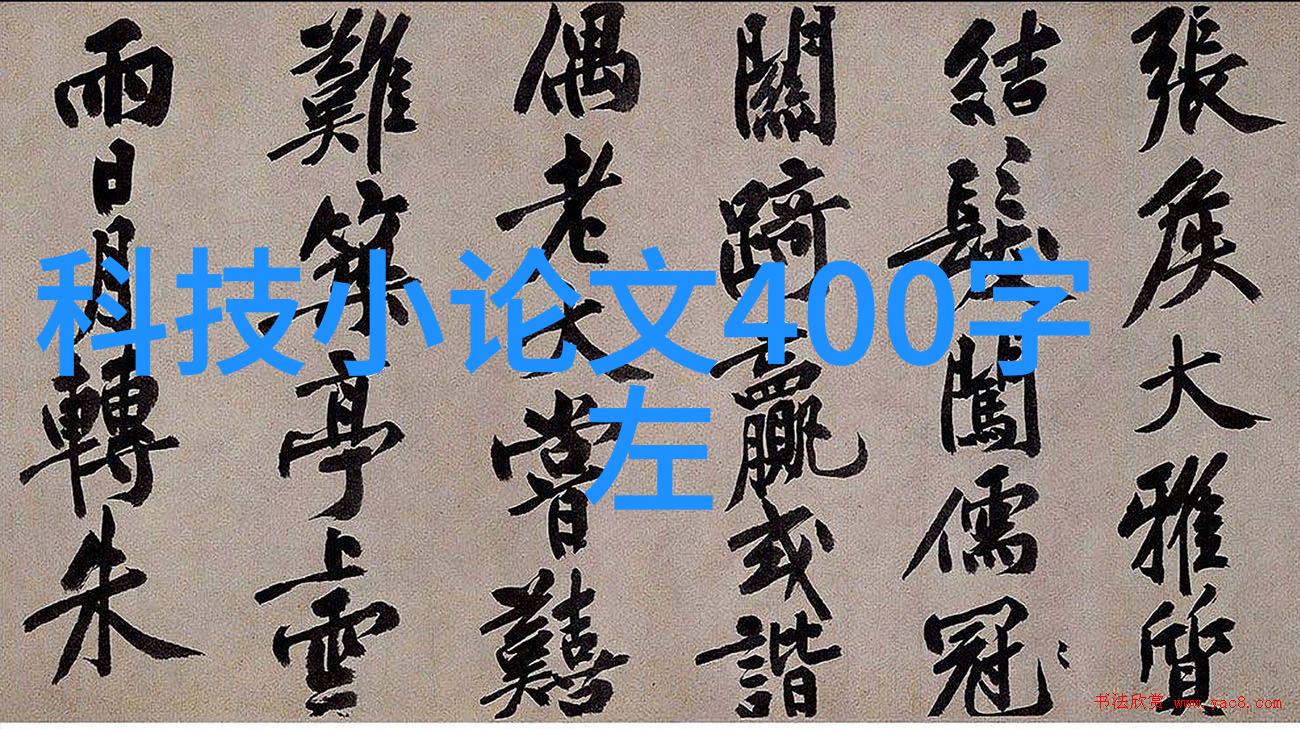 張矦大雅質
結髮闖儒冠
關踦贏或諧
偶老大嘗囏
難築亭上雲
雨日月轉朱
科技小论文400字
左
书法欣赏 www.yac8.com